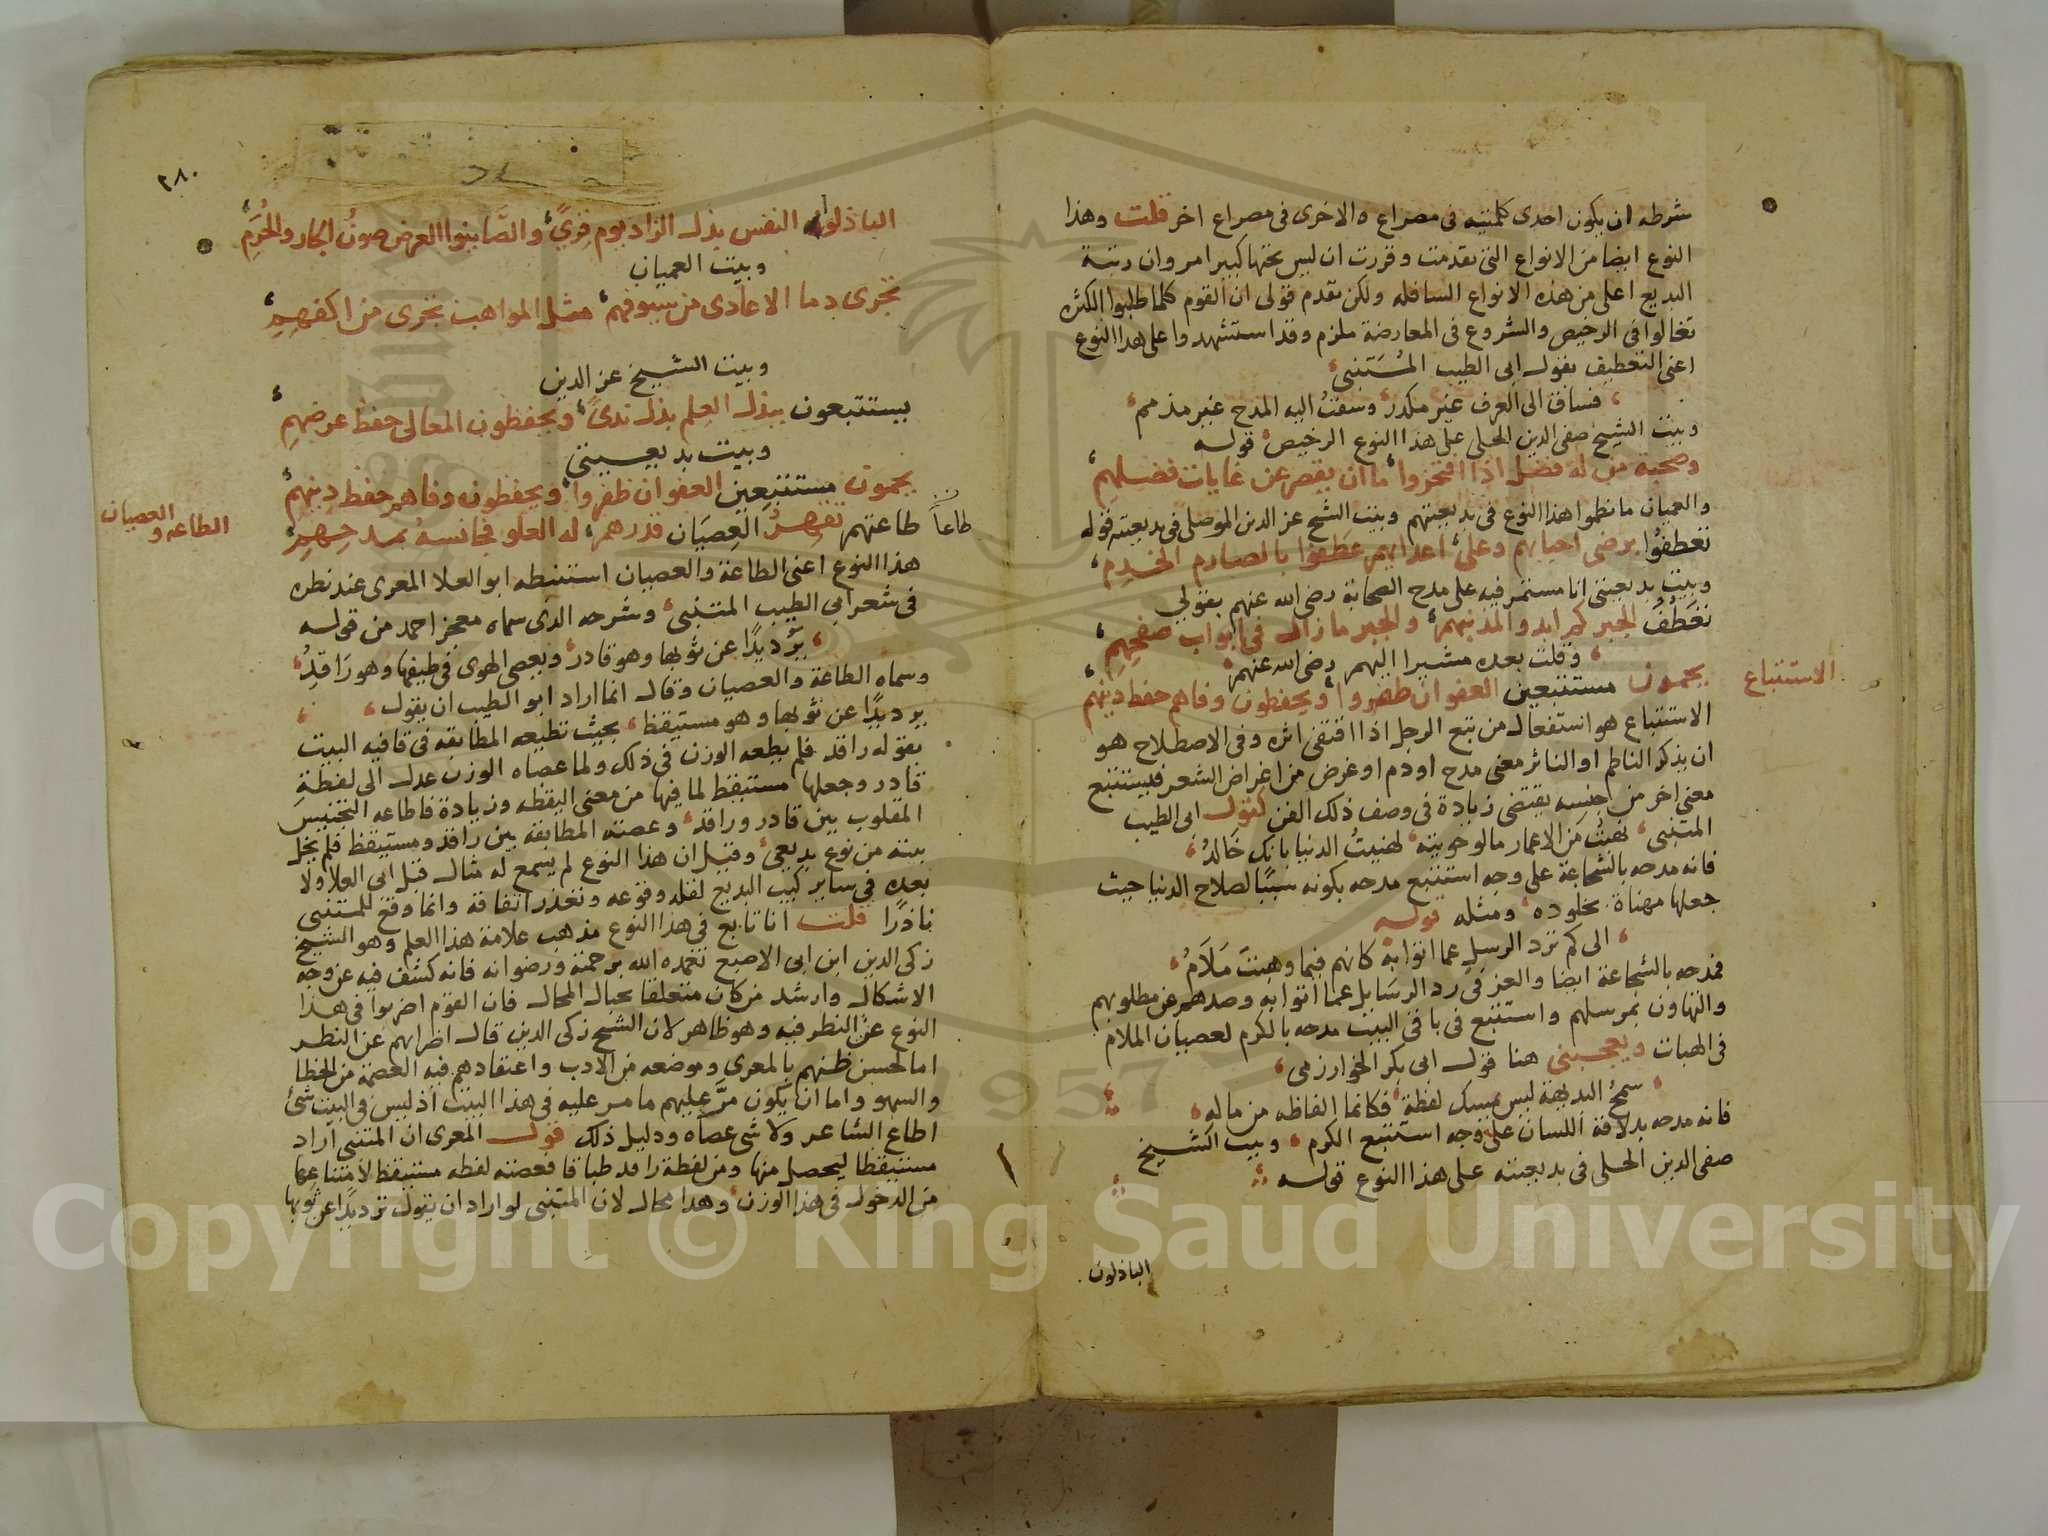 شرطه ان يكون احدى كلمتيه فى مصراع ه الاخرى فى مصراع اخر قلت وهذا
النوع ايضا من الانواع التى تقدمت وقررت ان ليس تحتها كبير امر وان رتبة
البديع اعلى من هذه الانواع السافله ولكن تقدم قولى ان القوم كلما طلبوا الكثره
تغالوا فى الرخيص والشروع فى المعارضة ملزم وقد استشهدوا على هذا النوع
اعنى التعطيف بقول ابى الطيب المتنبى
فساق الى العرف غير مكدر وسقت اليه المدح غير مذمم
وبيت الشيخ صفى الدين الحلى على هذا النوع الرخيص قوله
وصحبة من له فضل اذا افتخروا ما ان يقصر عن غايات فضلهم
والعميان ما نظموا هذا النوع فى بديعيتهم وبيت الشيخ عز الدين الموصلى فى بديعيته قوله
تعطفوا برضى احيابهم وعلى اعدايهم عطفوا بالصارم الخذم
وبيت بديعيتى انا مستمر فيه على مدح الصحابة رضى الله عنهم بقولي
تعطف الجبر كم ابدوا لمذنبهم والجبر ما زال فى ابواب صفحهم
وقلت بعده مشيرا اليهم رضى الله عنهم
الاستتباع
يحمون مستتبعين العفو ان ظفروا ويحفظون وفاهم حفظ دينهم
الاستتباع هو استفعال من تبع الرجل اذا اقتفى اثره وفى الاصطلاح هو
ان يذكر الناظم او الناثر معنى مدح او ذم او غرض من اغراض الشعر فيستتبع
معنى اخر من جنسه يقتضى زيادة فى وصف ذلك الفن كقول ابى الطيب
المتنبى نهبت من الاعمار ما لو حويته لهنيت الدنيا بانك خالد
فانه مدحه بالشجاعة على وجه استتبع مدحه بكونه سببا لصلاح الدنيا حيث
جعلها مهناة بخلوده ومثله قوله
الى كم ترد الرسل عما اتوا به كانهم فيما وهبت ملام
فمدحه بالشجاعة ايضا والعز فى رد الرسايل عما اتوا به وصدهم عن مطلوبهم
والتهاون بمرسلهم واستتبع فى باقى البيت مدحه بالكرم لعصيان الملام
فى الهبات ويعجبنى هنا قول ابى بكر الخوارزمى
سمح البديهة ليس يمسك لفظة فكانما الفاظه من ماله
فانه مدحه بذلاقة اللسان على وجه استتبع الكرم وبيت الشيخ
صفى الدين الحلى فى بديعيته على هذا النوع قوله
الباذلون
٢٨٠
الباذلوا النفس بذل الزاد يوم قرى والصاينوا العرض صون الجار والحرم
وبيت العميان
تجرى دما الاعادى من سيوفهم مثل المواهب تجرى من اكفهم
وبيت الشيخ عز الدين
يستتبعون ببذل العلم بذل ندى ويحفظون المعالى حفظ عرضهم
وبيت بديعيتى
يحمون مستتبعين العفو ان ظفروا ويحفظون وفاهم حفظ دينهم
الطاعه والعصيان
طاعاً
طاعتهم تقهر العصيان قدرهم له العلو فجانسه بمدحهم
هذا النوع اعنى الطاعة والعصيان استنبطه ابو العلا المعرى عند نظره
فى شعر ابى الطيب المتنبى وشرحه الذى سماه معجز احمد من قوله
يرد يدا عن ثوبها وهو قادر ويعصى الهوى فى طيفها وهو راقد
وسماه الطاعة والعصيان وقال انما اراد ابو الطيب ان يقول
يرد يدا عن ثوبها وهو مستيقظ بحيث تطيعه المطابقه فى قافيه البيت
بقوله راقد فلم يطعه الوزن فى ذلك ولما عصاه الوزن عدل الى لفظة
قادر وجعلها مستيقظ لما فيها من معنى اليقظه وزيادة فاطاعه التجنيس
المقلوب بين قادر وراقد وعصته المطابقة بين راقد ومستيقظ فلم يخل
بيته من نوع بديعى وقيل ان هذا النوع لم يسمع له مثال قبل ابى العلا ولا
بعده فى ساير كتب البديع لقلة وقوعه وتعذر اتفاقة وانما وقع للمتنبى
نادرا قلت انا تابع فى هذا النوع مذهب علامة هذا العلم وهو الشيخ
زكى الدين ابن ابى الاصبع تغمده الله برحمته ورضوانه فانه كشف فيه عن وجه
الاشكال وارشد من كان متعلقا بحبال المحال فان القوم اضربوا فى هذا
النوع عن النظر فيه وهو ظاهر لان الشيخ زكى الدين قال اضرابهم عن النظر
اما لحسن ظنهم بالمعرى وموضعه من الادب واعتقادهم فيه العصمة من الخطا
والسهو واما ان يكون مرَّ عليهم ما مر عليه فى هذا البيت اذ ليس فى البيت شئ
اطاع الشاعر ولا شى عصاه ودليل ذلك قول المعرى ان المتنبى اراد
مستيقظا ليحصل منها ومن لفظة راقد طباقا فعصته لفظه مستيقظ لامتناعها
من الدخول فى هذا الوزن وهذا محال لان المتنبى لو اراد ان يقول ترد يدا عن ثوبها
Copyright © King Saud University
1957